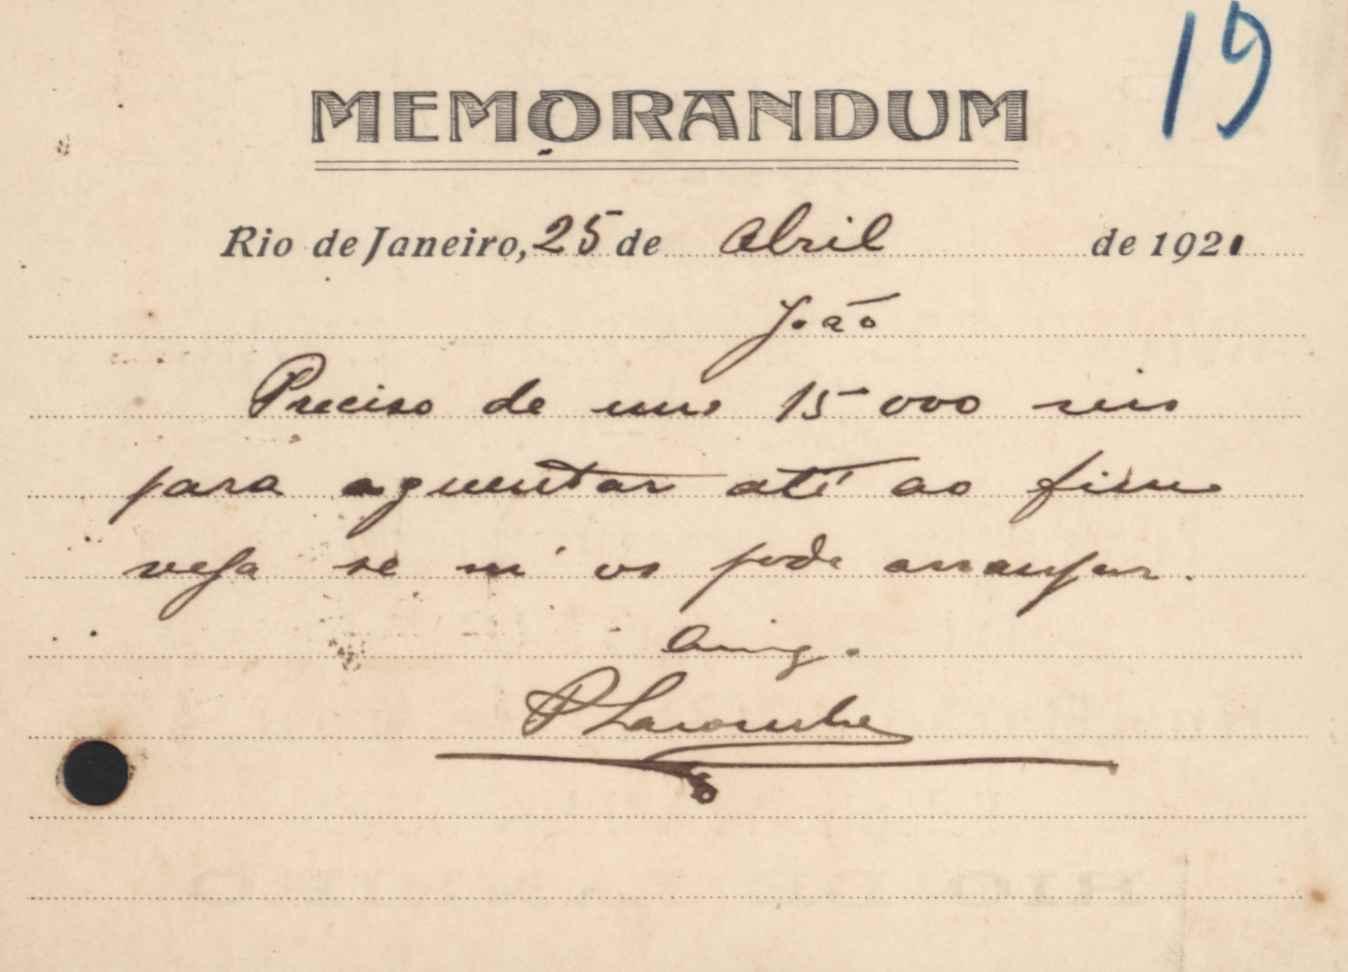 19
MEMORANDUM
Rio de Janeiro, 25 de Abril de 1921
João
Preciso de uns 15 000 reis
para aguentar até ao fim
veja se m'os pode arranjar.
Amig.
P Lacombe